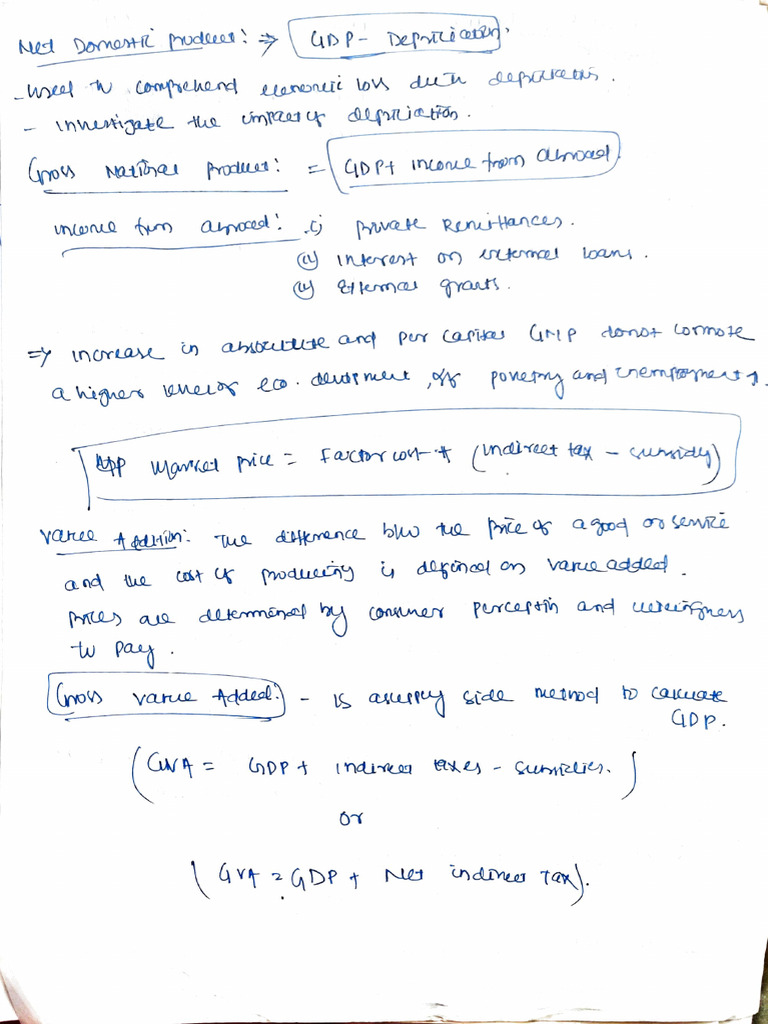 Net Domestic Product: ⇒ GDP - Depriciation.
- Used to comprehend economic loss due to depriciation.
- investigate the impact of depriciation.
Gross National Product: = GDP + income from abroad
income from abroad: (i) private Remittances.
(ii) Interest on external loans.
(iii) External grants.
⇒ increase in absolute and per capita GNP do not connote
a higher level of eco. develpment, if poverty and unemployment ↑.
Market price = Factor cost + (indirect tax - subsidy)
Value Addition: The difference b/w the price of a good or service
and the cost of producing is defined as value added.
prices are determined by consumer perceptin and willingness
to pay.
Gross Value Added: - is a supply side method to calculate
GDP.
(GVA = GDP + indirect taxes - subsidies.)
or
(GVA = GDP + Net indirect tax).